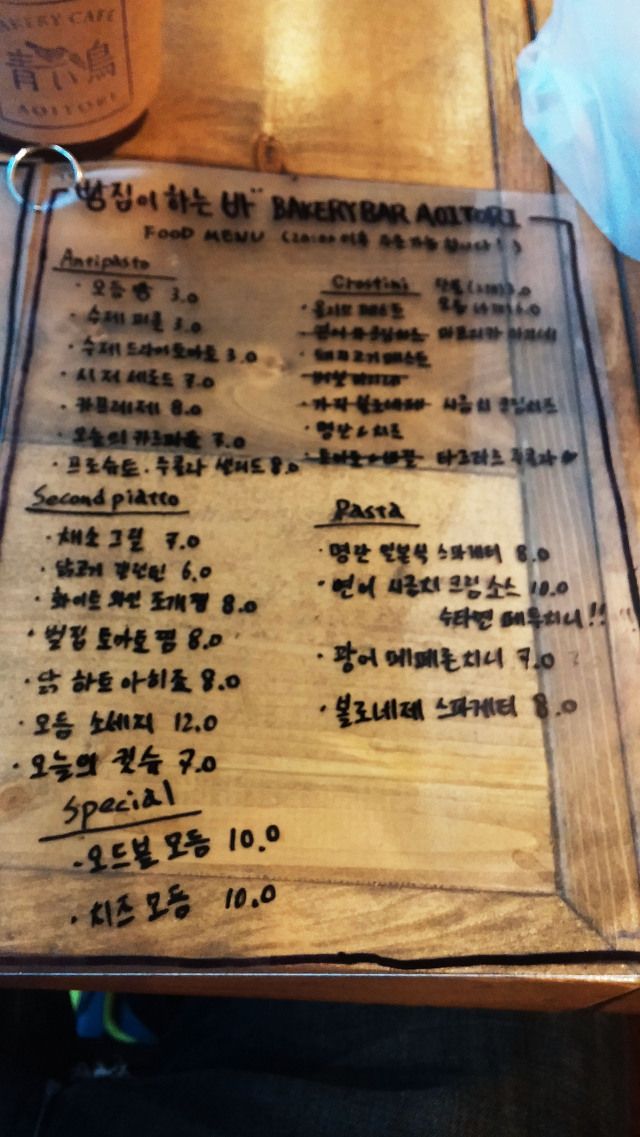 BAKERY CAFE
青い鳥
AOITORI
빵집이 하는 바 BAKERY BAR AOITORI
FOOD MENU (20:00 이후
Antipasto
· 모듬 빵 3.0
· 수제 피클 3.0
· 수제 드라이토마토 3.0
· 시저 세로드 7.0
· 카프레제 8.0
· 오늘의 카르파쵸 7.0
· 프로슈토. 루콜라 샐러드 8.0
Crostini
· 올리브 페스토
· 돼지고기 페스토
· 명란 & 치즈
Second piatto
· 채소 그릴 7.0
· 닭고기 6.0
· 화이트 와인 조개찜 8.0
· 벌집 토마토 찜 8.0
· 닭 하토 아히죠 8.0
· 모듬 소세지 12.0
· 오늘의 7.0
Pasta
· 명란 일본식 스파게티 8.0
· 연어 시금치 크림소스 10.0
수타면 페투치니!!
· 광어 페페론치니 7.0
· 볼로네제 스파게티 8.0
Special
- 오드블 모듬 10.0
· 치즈 모듬 10.0